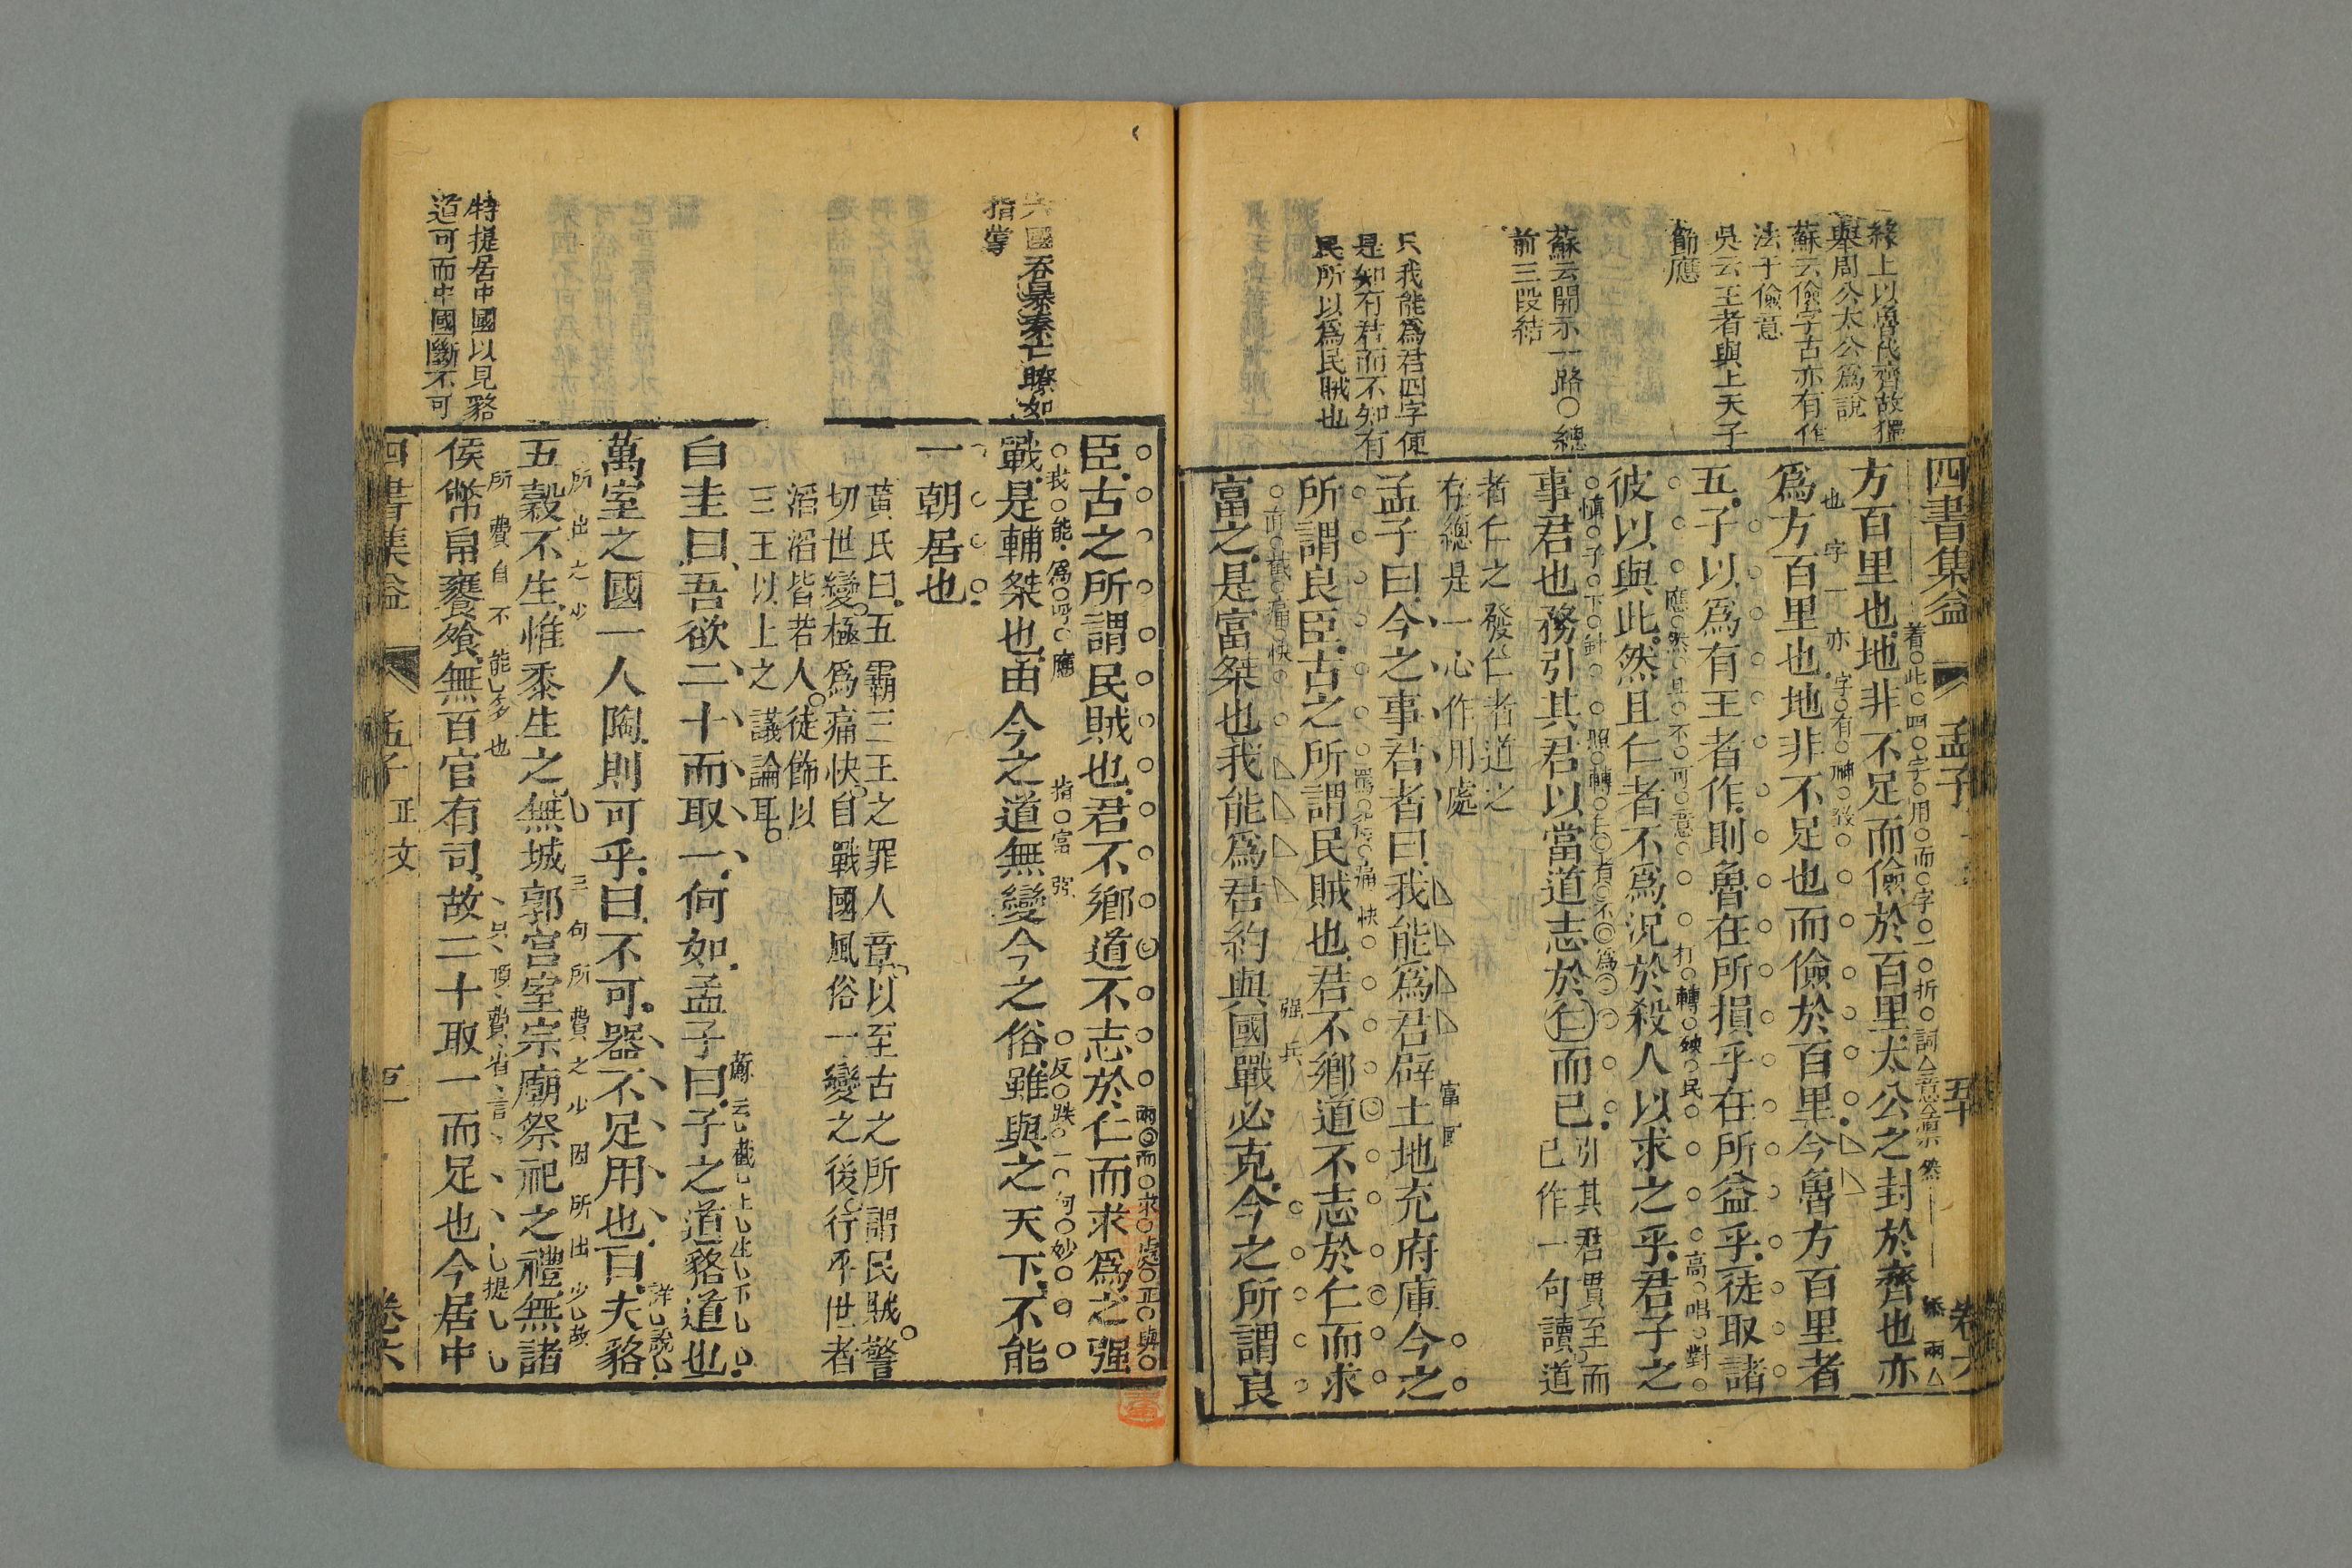 四書集益
孟子
五十
卷六
緣上以魯代齊故獨
舉周公太公爲說
蘇云儉字古亦有作
法于儉意
吳云王者與上天子
節應
蘇云開示一路○總
前三段結
只我能爲君四字便
是知有君而不知有
民所以爲民賊也
方百里也地非不足而儉於百里太公之封於齊也亦
爲方百里也地非不足也而儉於百里今魯方百里者
五子以爲有王者作則魯在所損乎在所益乎徒取諸
彼以與此然且仁者不爲況於殺人以求之乎君子之
事君也務引其君以當道志於仁而已
引其君貫至而
已作一句讀道
者仁之發仁者道之
存總是一心作用處
孟子曰今之事君者曰我能爲君辟土地充府庫今之
富國
所謂良臣古之所謂民賊也君不鄉道不志於仁而求
富之是富桀也我能爲君約與國戰必克今之所謂良
强兵
六國吞暴秦亡瞭如
指掌
特提居中國以見貉
道可而中國斷不可
臣古之所謂民賊也君不鄉道不志於仁而求爲之强
戰是輔桀也由今之道無變今之俗雖與之天下不能
指富强
一朝居也
黃氏曰五霸三王之罪人章以至古之所謂民賊警
切世變極爲痛快自戰國風俗一變之後行乎世者
滔滔皆若人徒飾以
三王以上之議論耳
白圭曰吾欲二十而取一何如孟子曰子之道貉道也
蘇云截上生下
萬室之國一人陶則可乎曰不可器不足用也曰夫貉
詳說
五穀不生惟黍生之無城郭宮室宗廟祭祀之禮無諸
所出之少
三句所費之少因所出少故
侯幣帛饔飧無百官有司故二十取一而足也今居中
所費自不能多也
只頂費省言
提
四書集益
孟子
正文
卷六